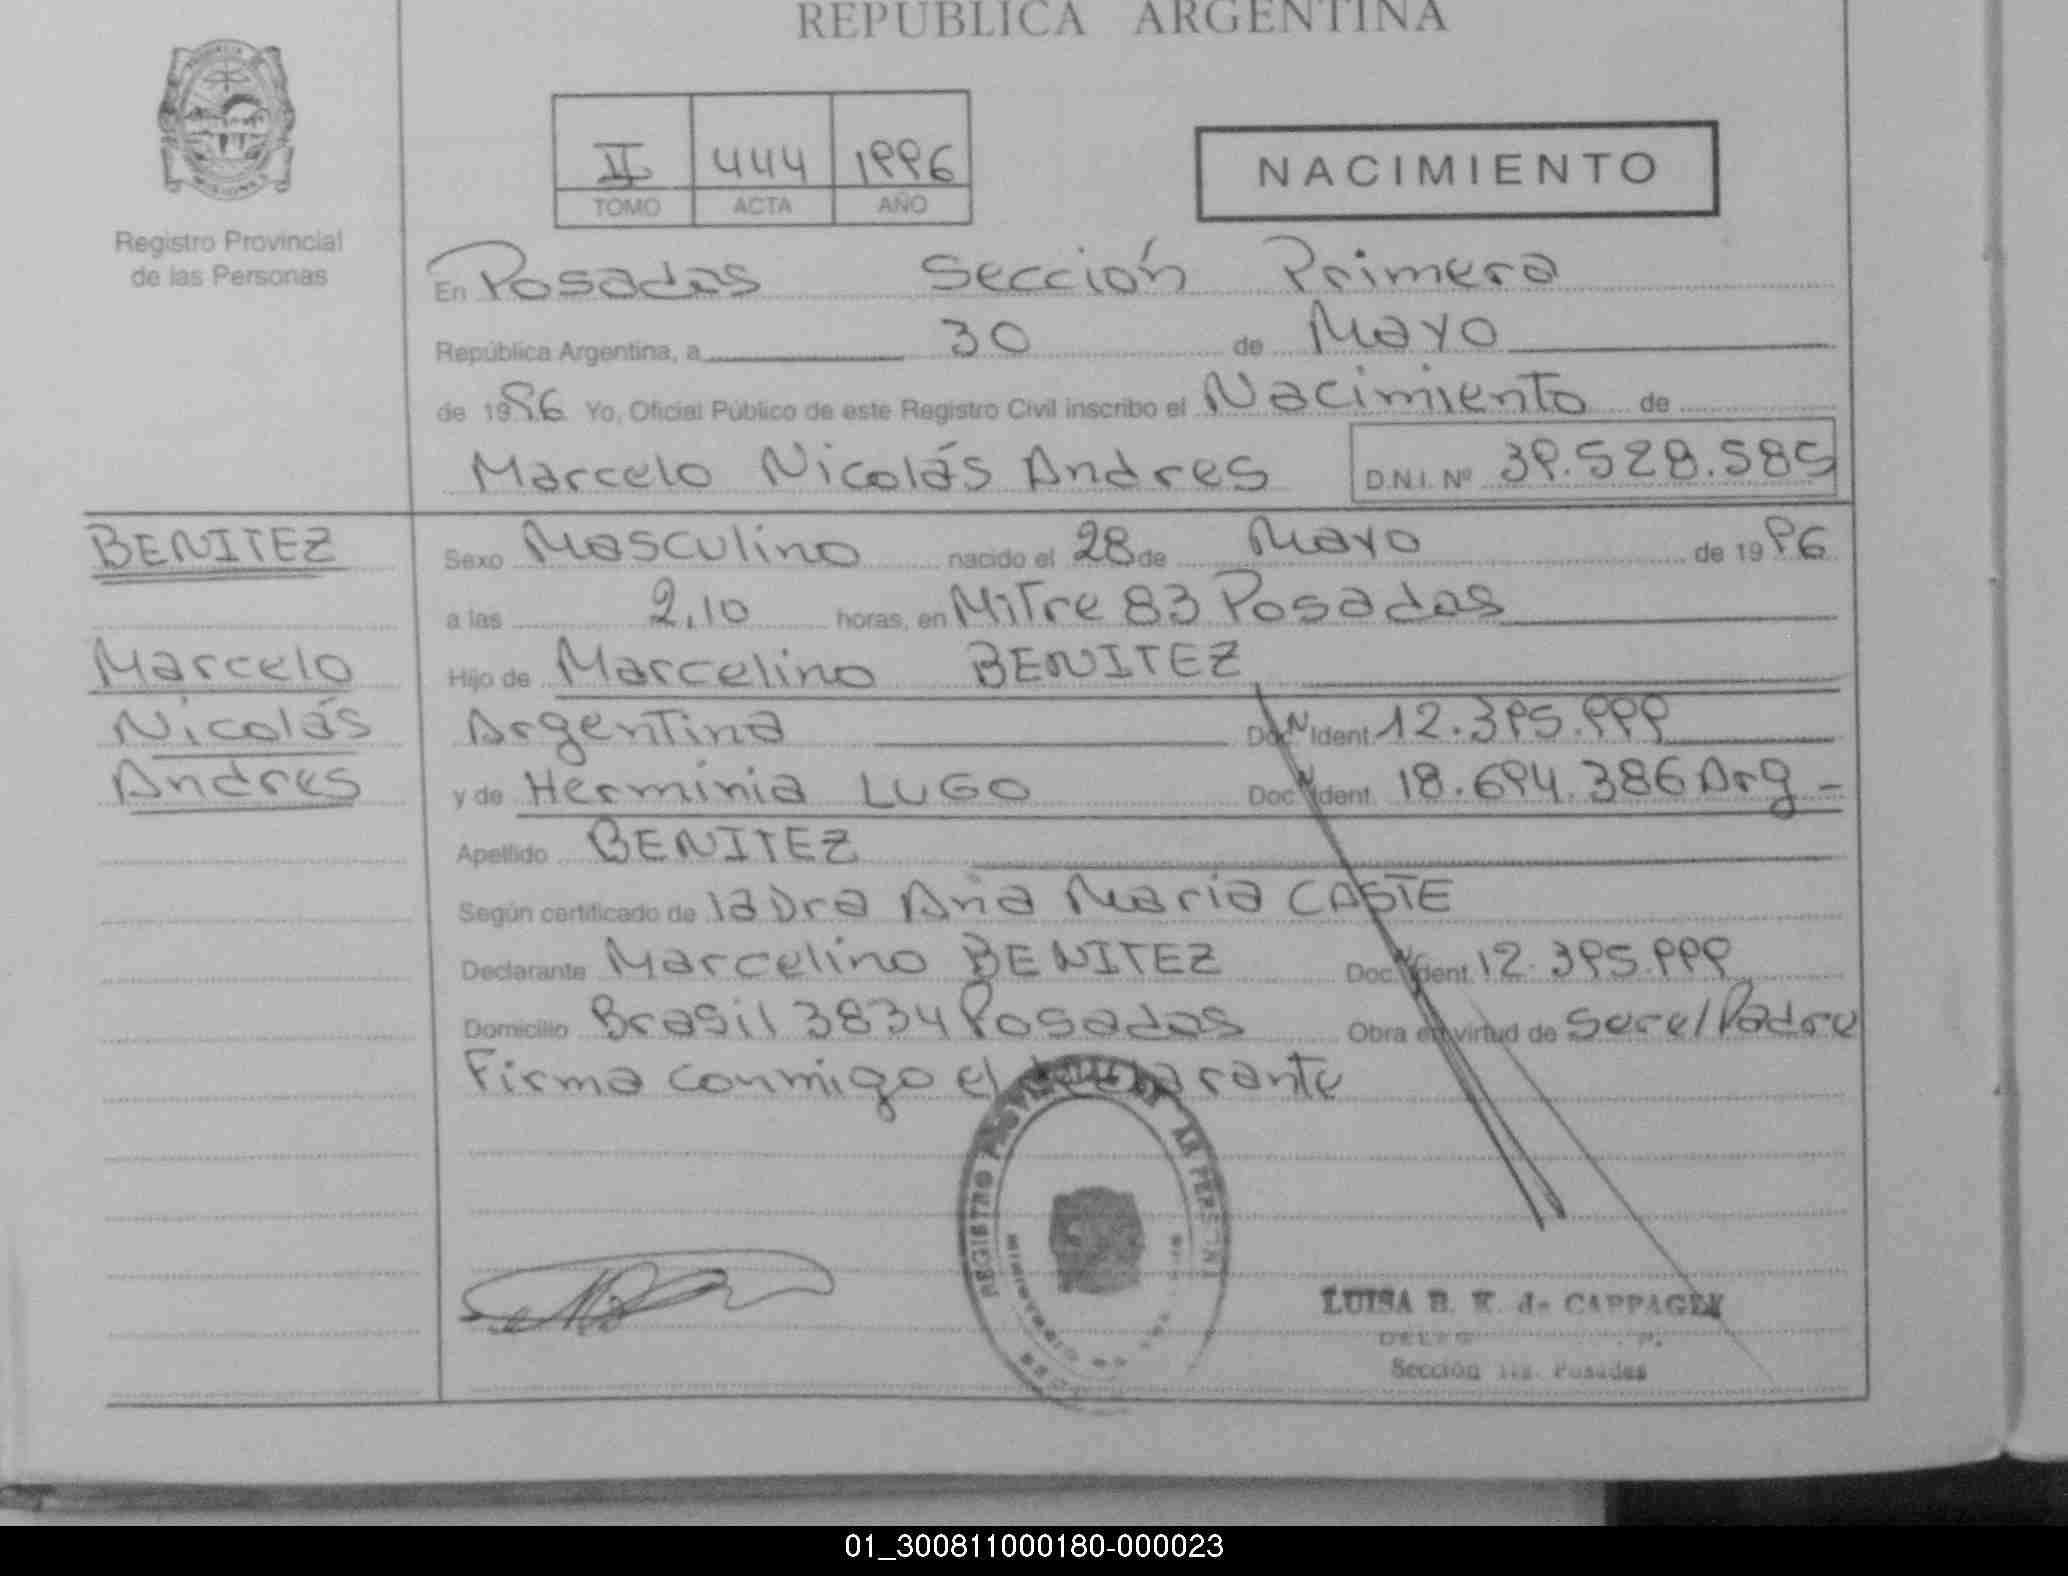 REPUBLICA ARGENTINA
MISIONES
Registro Provincial
de las Personas
II 444 1996
TOMO ACTA AÑO
NACIMIENTO
En Posadas Sección Primera
República Argentina, a 30 de Mayo
de 1996 Yo, Oficial Público de este Registro Civil inscribo el Nacimiento de
Marcelo Nicolás Andres D.N.I. Nº 39.528.585
BENITEZ
Marcelo
Nicolás
Andres
Sexo Masculino nacido el 28 de Mayo de 1996
a las 2,10 horas, en Mitre 83 Posadas
Hijo de Marcelino BENITEZ
Argentina Doc. Ident. 12.395.999
y de Herminia LUGO Doc. Ident. 18.694.386 Arg -
Apellido BENITEZ
Según certificado de la Dra Ana Maria CASTE
Declarante Marcelino BENITEZ Doc. Ident. 12.395.999
Domicilio Brasil 3834 Posadas Obra en virtud de ser el Padre
Firma conmigo el declarante
REGISTRO PROVINCIAL DE LAS PERSONAS
LUISA B. K. de
Sección 1ra. Posadas
01_300811000180-000023